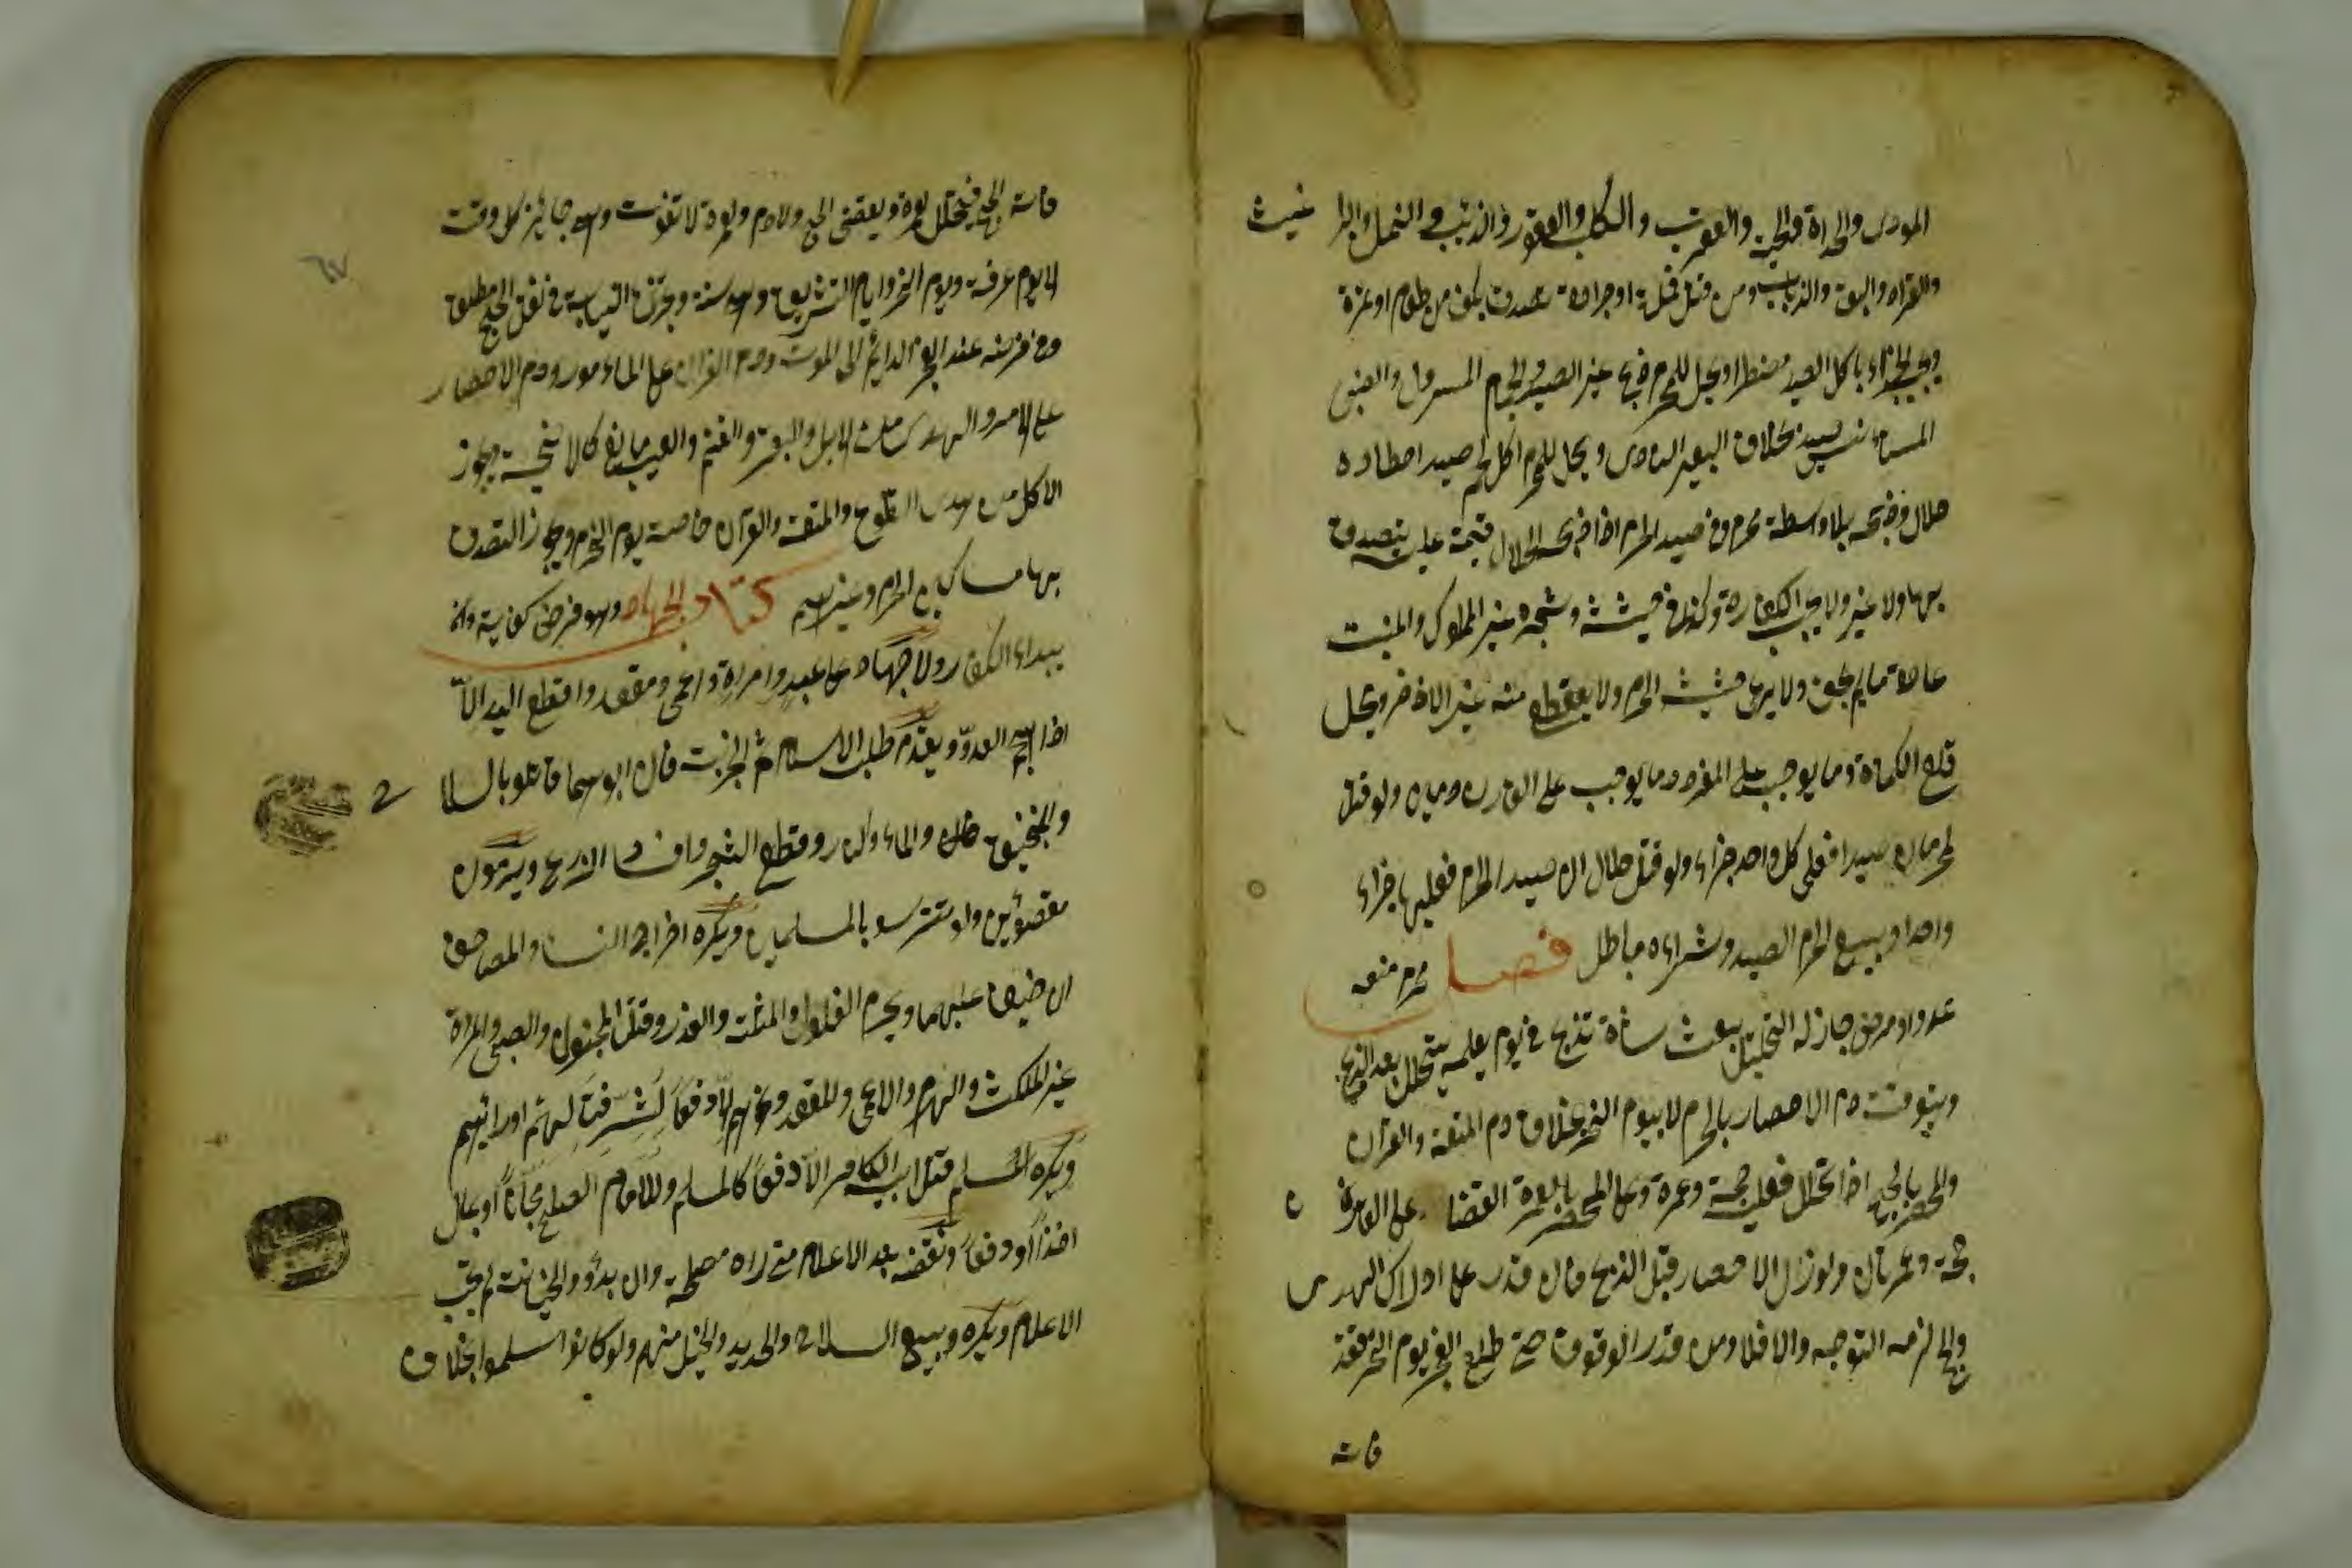 الموذى والحداة والحية والعقرب والكلب العقور والذئب والنمل والبرا غيث
والقراد والبق والذباب ومن قتل قملة او جرادة تصدق بكف من طعام او تمرة
ويجب الجزاء باكل الصيد مضطرا ويحل للمحرم ذبح غير الصيد والحمام المسرول والضبى
المستانس صيد بخلاف البعير الناد ويحل للمحرم اكل لحم صيد اصطاده
حلال وذبحه بلا واسطة محرم وفى صيد الحرم اذا ذبحه الحلال قيمة عليه يتصدق
بها ولا غير ولا يجب الكفارة وكذا فى حشيشه وشجره غير المملوك والمنبت
عادة ما لم يجف ولا يرعى حشيش الحرم ولا يقطع منه غير الاذخر ويحل
قلع الكماة وما يوجب على المفرد دما يوجب على القارن دمان ولو قتل
محرمان صيدا فعلى كل واحد جزاء ولو قتل حلالان صيد الحرم فعليهما جزاء
واحد وبيع المحرم الصيد وشراءه باطل فصل محرم منعه
عدو او مرض جاز له التحليل يبعث شاة تذبح فى يوم يعلمه يتحلل بعد الذبح
ويتوقت دم الاحصار بالحرم لا بيوم النحر بخلاف دم المتعة والقران
والمحصر بالحج اذا تحلل فعليه حجة وعمرة وعلى المحصر بالعمرة القضا على القارن
حجة وعمرتان ولو زال الاحصار قبل الذبح فان قدر على ادراك الهدى
والحج لزمه التوجه والا فلا ومن قدر الوقوف حتى طلع الفجر يوم النحر فقد
فاته
فاته الحج فيتحلل بعمرة ويقضى الحج ولا دم والعمرة لا تفوت وهى جايز كل وقت
الا يوم عرفة ويوم النحر وايام التشريق وهى سنة ويجزئ النيابة فى نفل الحج مطلق
وفى فرضه عند العجز الدايم الى الموت ودم القران على المامور ودم الاحصار
على الامر والهدى من الابل والبقر والغنم والعيب مانع كالاضحية ويجوز
الاكل من هدى التطوع والمتعة والقران خاصة يوم النحر ويجوز التصدق
بها مساكين الحرم وغيرهم كتاب الجهاد وهو فرض كفاية وانه
ببداء الكفار ولا جهاد على عبد وامراة واعمى ومقعد واقطع اليد الا
اذا هجم العدو ويقدم طلب الاسلام ثم الجزية فان ابوهما قاتلو بالسلا ح
والمنجنيق والماء والنار وقطع الشجر وافساد الزرع ويرمون
مقصودين وان تترسو بالمسلمين ويكره اخراج النسا والمصاحف
ان خيف عليهما ويحرم الغلول والمثلة والغدر وقتل المجنون والصبى والمراة
غير الملكة والهرم والاعمى والمقعد ونحوهم الا دفعا لشر قتالهم او رايهم
ويكره للمسلم قتل ابيه الكافر الا دفعا كالمسلم وللامام الصلح مجانا او بمال
اخذا او دفعا ونقضه بعد الاعلام متى راه مصلحة وان بدؤو الخيانة لم يجب
الاعلام ويكره وبيع السلاح والحديد والخيل منهم ولو كانوا سلموا بخلاف